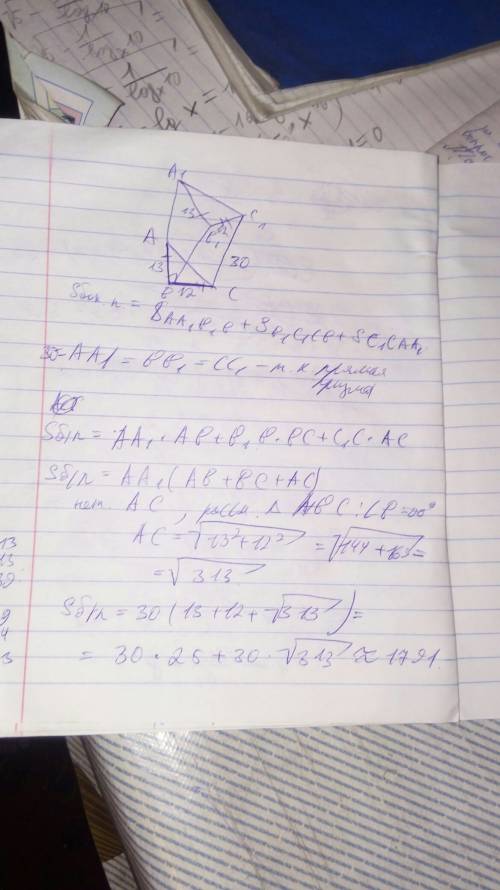 A₁
C₁
13
12
B₁
A
13
30
B 12 C
Sбок п =
SAA₁B₁B + SB₁C₁CB + SC₁CAA₁
30=AA₁ = BB₁ = CC₁ - т.к прямая
призма
Sб/п = AA₁·AB + B₁B·BC + C₁C·AC
Sб/п = AA₁(AB + BC + AC)
AC, рассм. Δ ABC: ∠B=90°
AC = √13²+12² = √144+169 =
= √313
Sб/п = 30(13+12+√313) =
= 30·25+30·√313 ≈ 1791